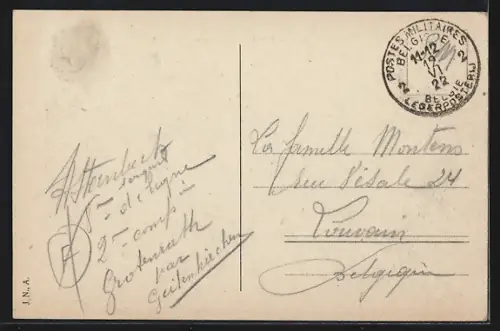 A Steenbeck
5me
de ligne
2me comp
Grotenrath
par
Geilenkirchen
F
J.N., A.
POSTES MILITAIRES
BELGIQUE
11-12
19
VI
22
2 2
BELGIE
LEGERPOSTERIJ
La famille Montens
rue Vésale 24
Louvain
Belgique